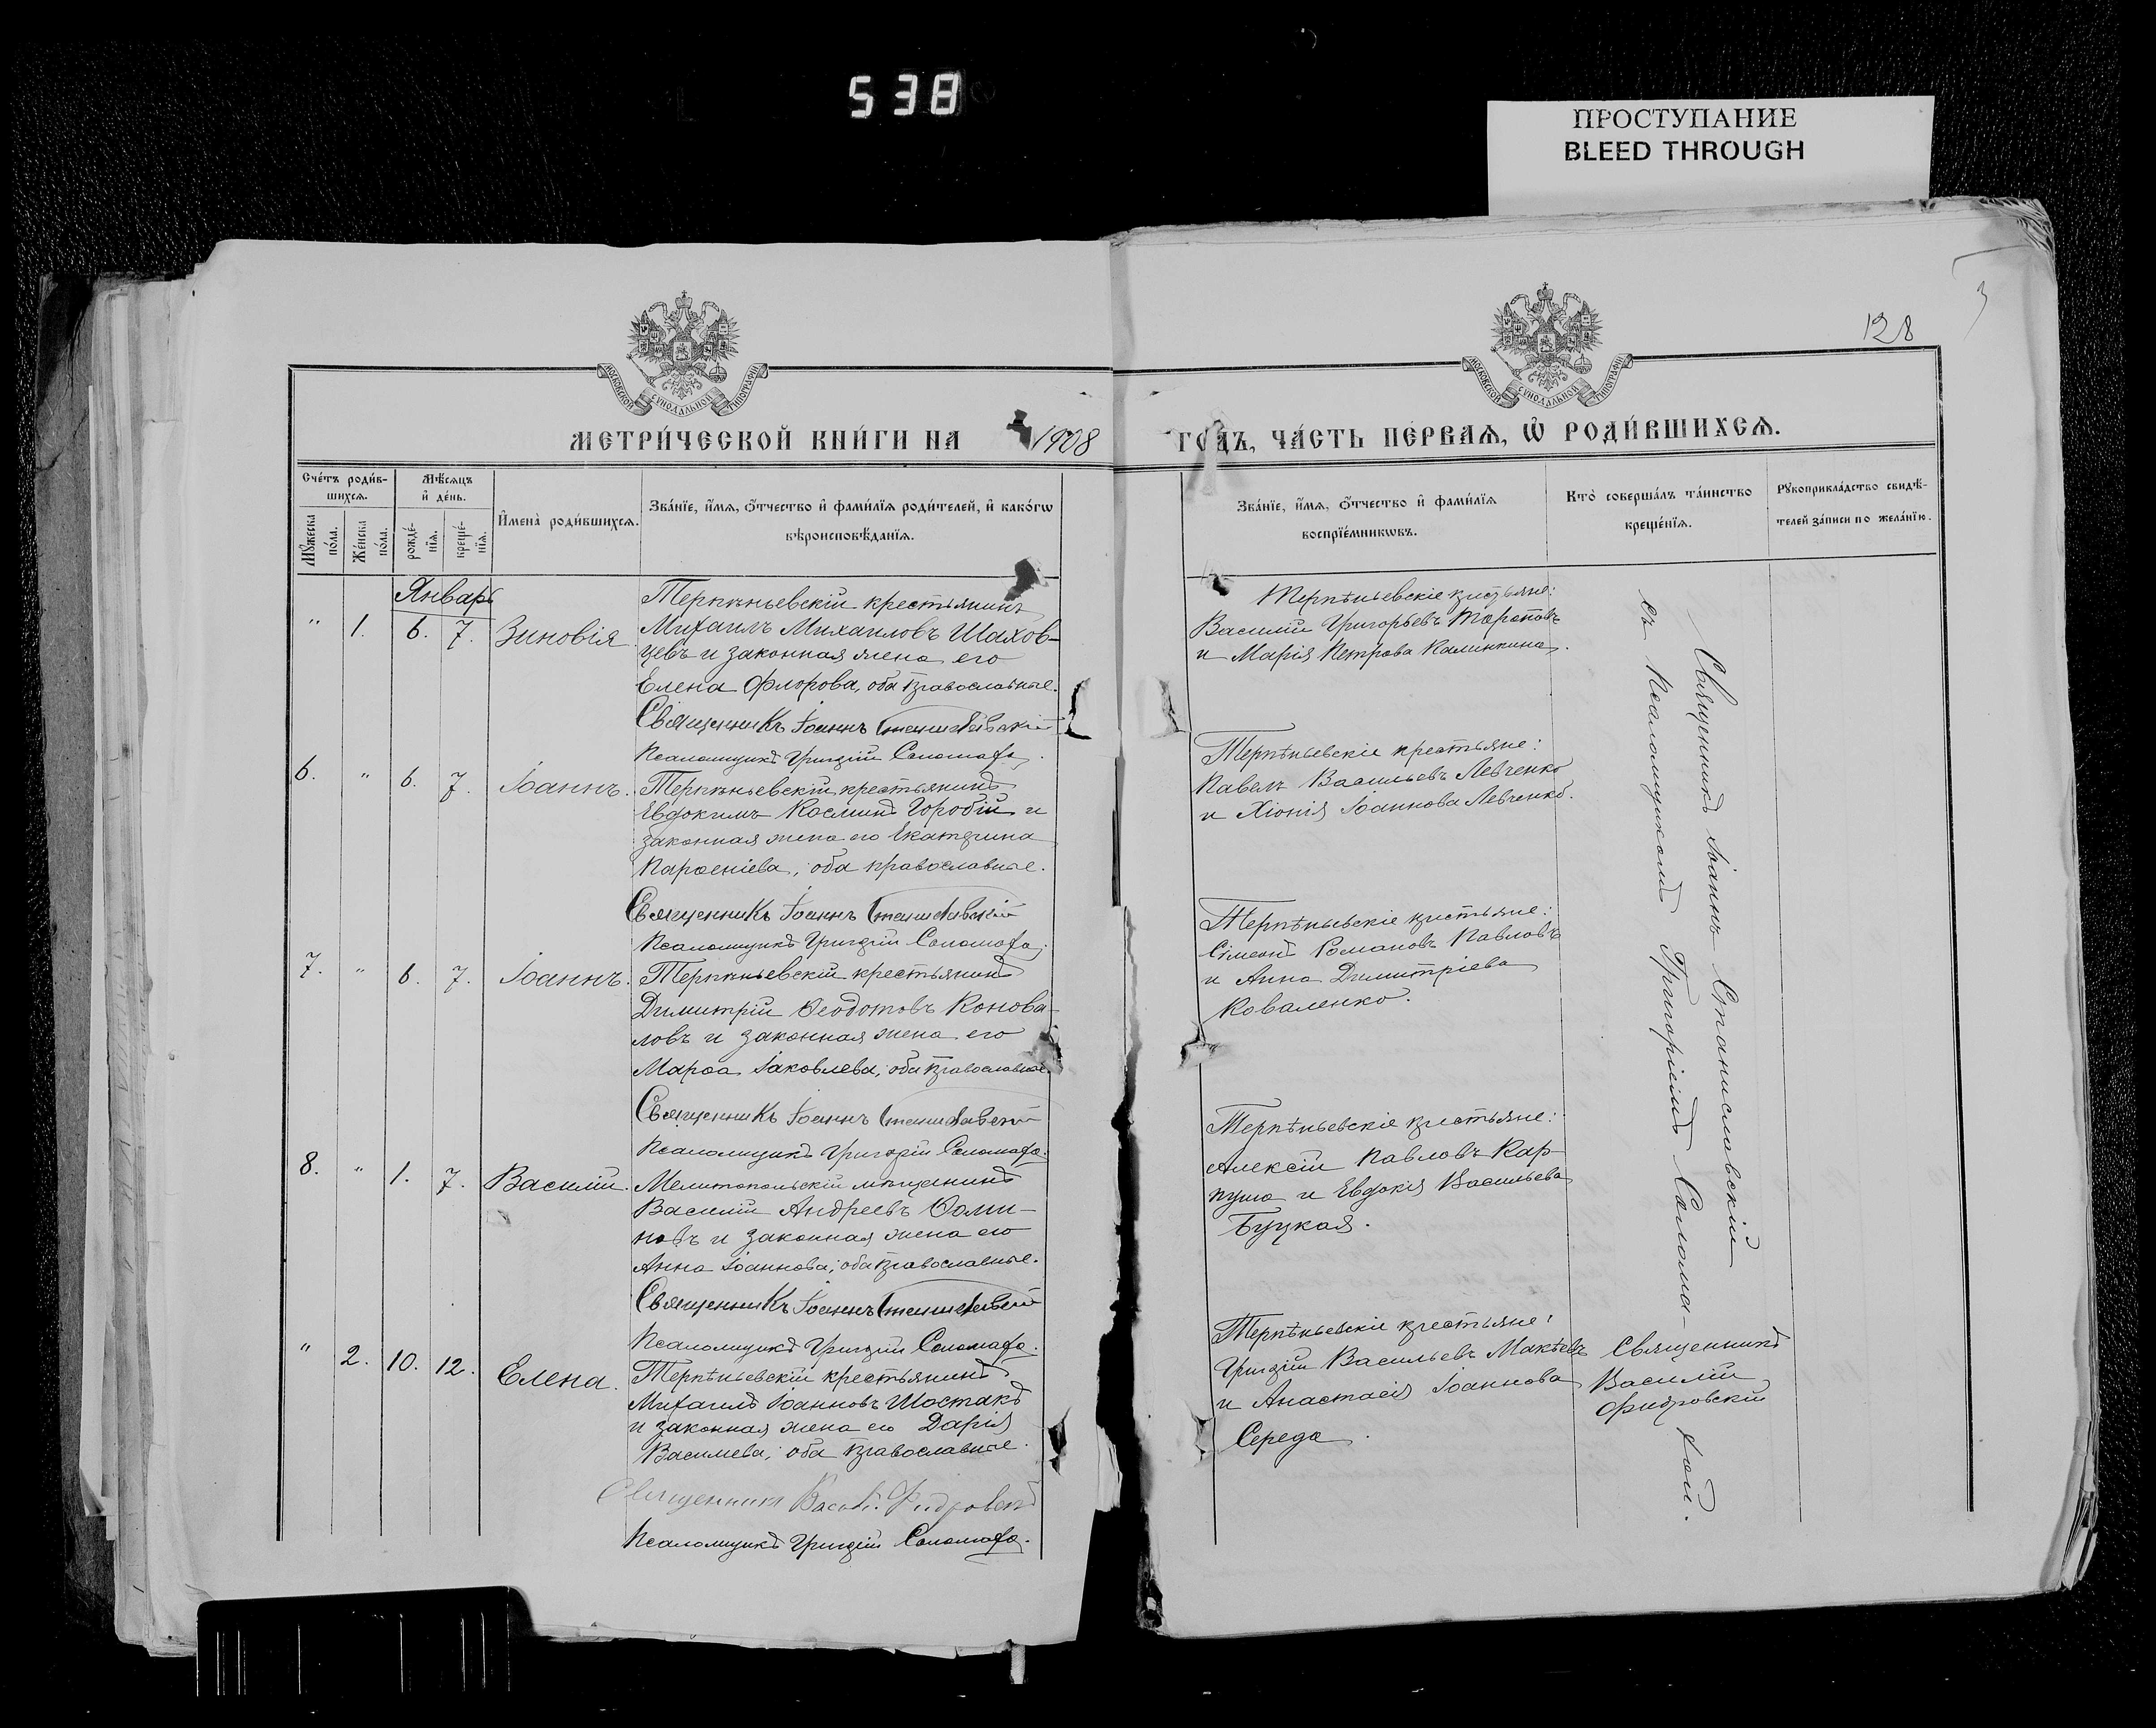 538
ПРОСТУПАНИЕ
BLEED THROUGH
3
128
МОСКОВСКОЙ СѴНОДАЛЬНОЙ ТИПОГРАФІИ
МОСКОВСКОЙ СѴНОДАЛЬНОЙ ТИПОГРАФІИ
МЕТРИ́ЧЕСКОЙ КНИ́ГИ НА 1908
ГОДЪ, ЧА́СТЬ ПЕ́РВАѦ, Ѡ҆ РОДИ́ВШИХСѦ.
Сче́тъ роди́в-
шихсѧ.
Мѣ́сѧцъ
и҆ де́нь.
Мꙋ́жеска
по́ла.
Же́нска
по́ла.
рожде́-
нїѧ.
креще́-
нїѧ.
И҆мена̀ роди́вшихсѧ.
Зва́нїе, и҆́мѧ, ѻ҆́тчество и҆ фами́лїѧ роди́телей, и҆ како́гѡ
вѣроисповѣ́данїѧ.
Зва́нїе, и҆́мѧ, ѻ҆́тчество и҆ фами́лїѧ
воспрїе́мникѡвъ.
Кто̀ соверша́лъ та́инство
креще́нїѧ.
Рꙋкоприкла́дство свидѣ́-
телей за́писи по жела́нїю.
Январь
" 1. 6. 7. Зиновія
Терпѣньевскій крестьянинъ
Михаилъ Михаиловъ Шахов-
цевъ и законная жена его
Елена Флорова, оба православные.
Священникъ Іоаннъ Станиславскій
Псаломщикъ Григорій Саломаха.
Терпѣньевскіе крестьяне:
Василій Григорьевъ Торотовъ
и Марія Петрова Калинкина.
6. " 6. 7. Іоаннъ.
Терпѣньевскій крестьянинъ
Евдокимъ Косминъ Горобій и
законная жена его Екатерина
Парѳеніева, оба православные.
Священникъ Іоаннъ Станиславскій
Псаломщикъ Григорій Саломаха.
Терпѣньевскіе крестьяне:
Павелъ Васильевъ Левченко
и Хіонія Іоаннова Левченко.
7. " 6. 7. Іоаннъ.
Терпѣньевскій крестьянинъ
Димитрій Ѳеодотовъ Конова-
ловъ и законная жена его
Марѳа Іаковлева, оба православные.
Священникъ Іоаннъ Станиславскій
Псаломщикъ Григорій Саломаха.
Терпѣньевскіе крестьяне:
Сімеонъ Романовъ Павловъ
и Анна Димитріева
Коваленко.
8. " 1. 7. Василій.
Мелитопольскій мѣщанинъ
Василій Андреевъ Ѳоми-
новъ и законная жена его
Анна Іоаннова, оба православные.
Священникъ Іоаннъ Станиславскій
Псаломщикъ Григорій Саломаха.
Терпѣньевскіе крестьяне:
Алексій Павловъ Кар-
пуша и Евдокія Васильева
Буцкая.
" 2. 10. 12. Елена.
Терпѣньевскій крестьянинъ
Михаилъ Іоанновъ Шостакъ
и законная жена его Дарія
Василиева, оба православные.
Священникъ Васил. Фидровскій
Псаломщикъ Григорій Саломаха.
Терпѣньевскіе крестьяне:
Григорій Васильевъ Макѣевъ
и Анастасія Іоаннова
Середа.
Священникъ Іоаннъ Станиславскій
съ Псаломщикомъ Григоріемъ Салома-
хой.
Священникъ
Василій
Фидровскій